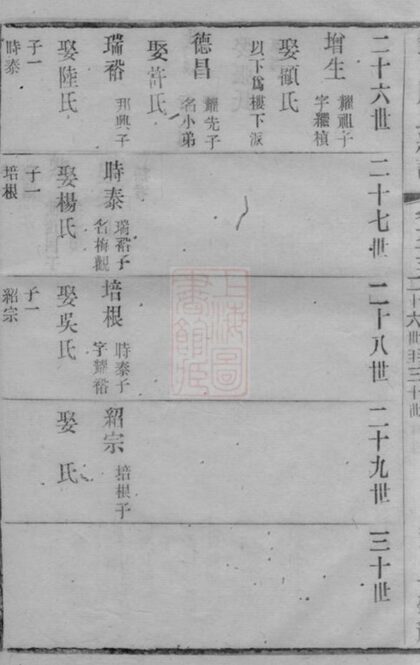 二十六世
增生 耀祖子 字繼禎
娶顧氏
以下爲樓下派
德昌 耀先子 名小弟
娶許氏
瑞裕 邦興子
娶陸氏
子一
時泰
二十七世
時泰 瑞裕子 名梅觀
娶楊氏
子一
培根
二十八世
培根 時泰子 字耀裕
娶吳氏
子一
紹宗
二十九世
紹宗 培根子
娶 氏
三十世
上海圖書館藏
二十六世至三十世